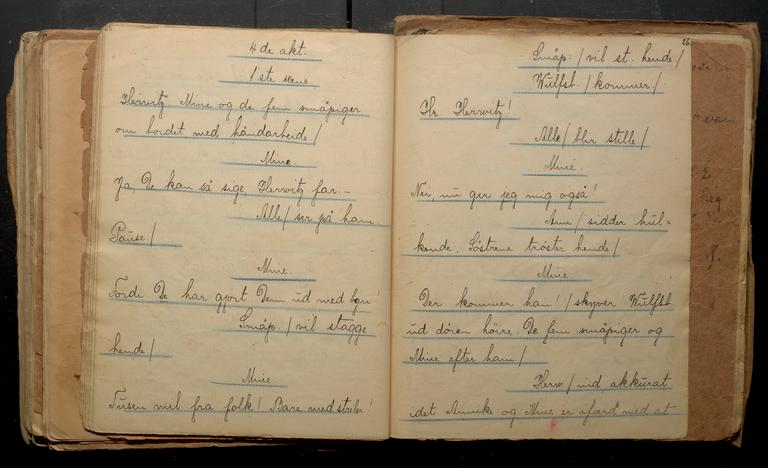 25
4 de akt.
1 ste scene
Herwitz Mine og de fem småpiger
om bordet med håndarbeide /
Mine.
Ja, De kan så sige, Herwitz far. –
Alle / ser på ham.
Pause /
Mine.
Fordi De har gjort Dem ud med byn!
Småp. / vil stagge
hende /
Mine.
Tusen mil fra folk! Bare med striler!
26
Småp. / vil st. hende /
Wulfst. / kommer /
Hr. Herwitz!
Alle / blir stille /
Mine.
Nei, nu gir jeg mig også!
Ann / sidder hul=
kende. Söstrene tröster hende /
Mine
Der kommer han! / skyver Wulfst
ud dören höire. De fem småpiger og
Mine efter ham /
Herw / ind, akkurat
idet Annike og Mine er ifærd med at